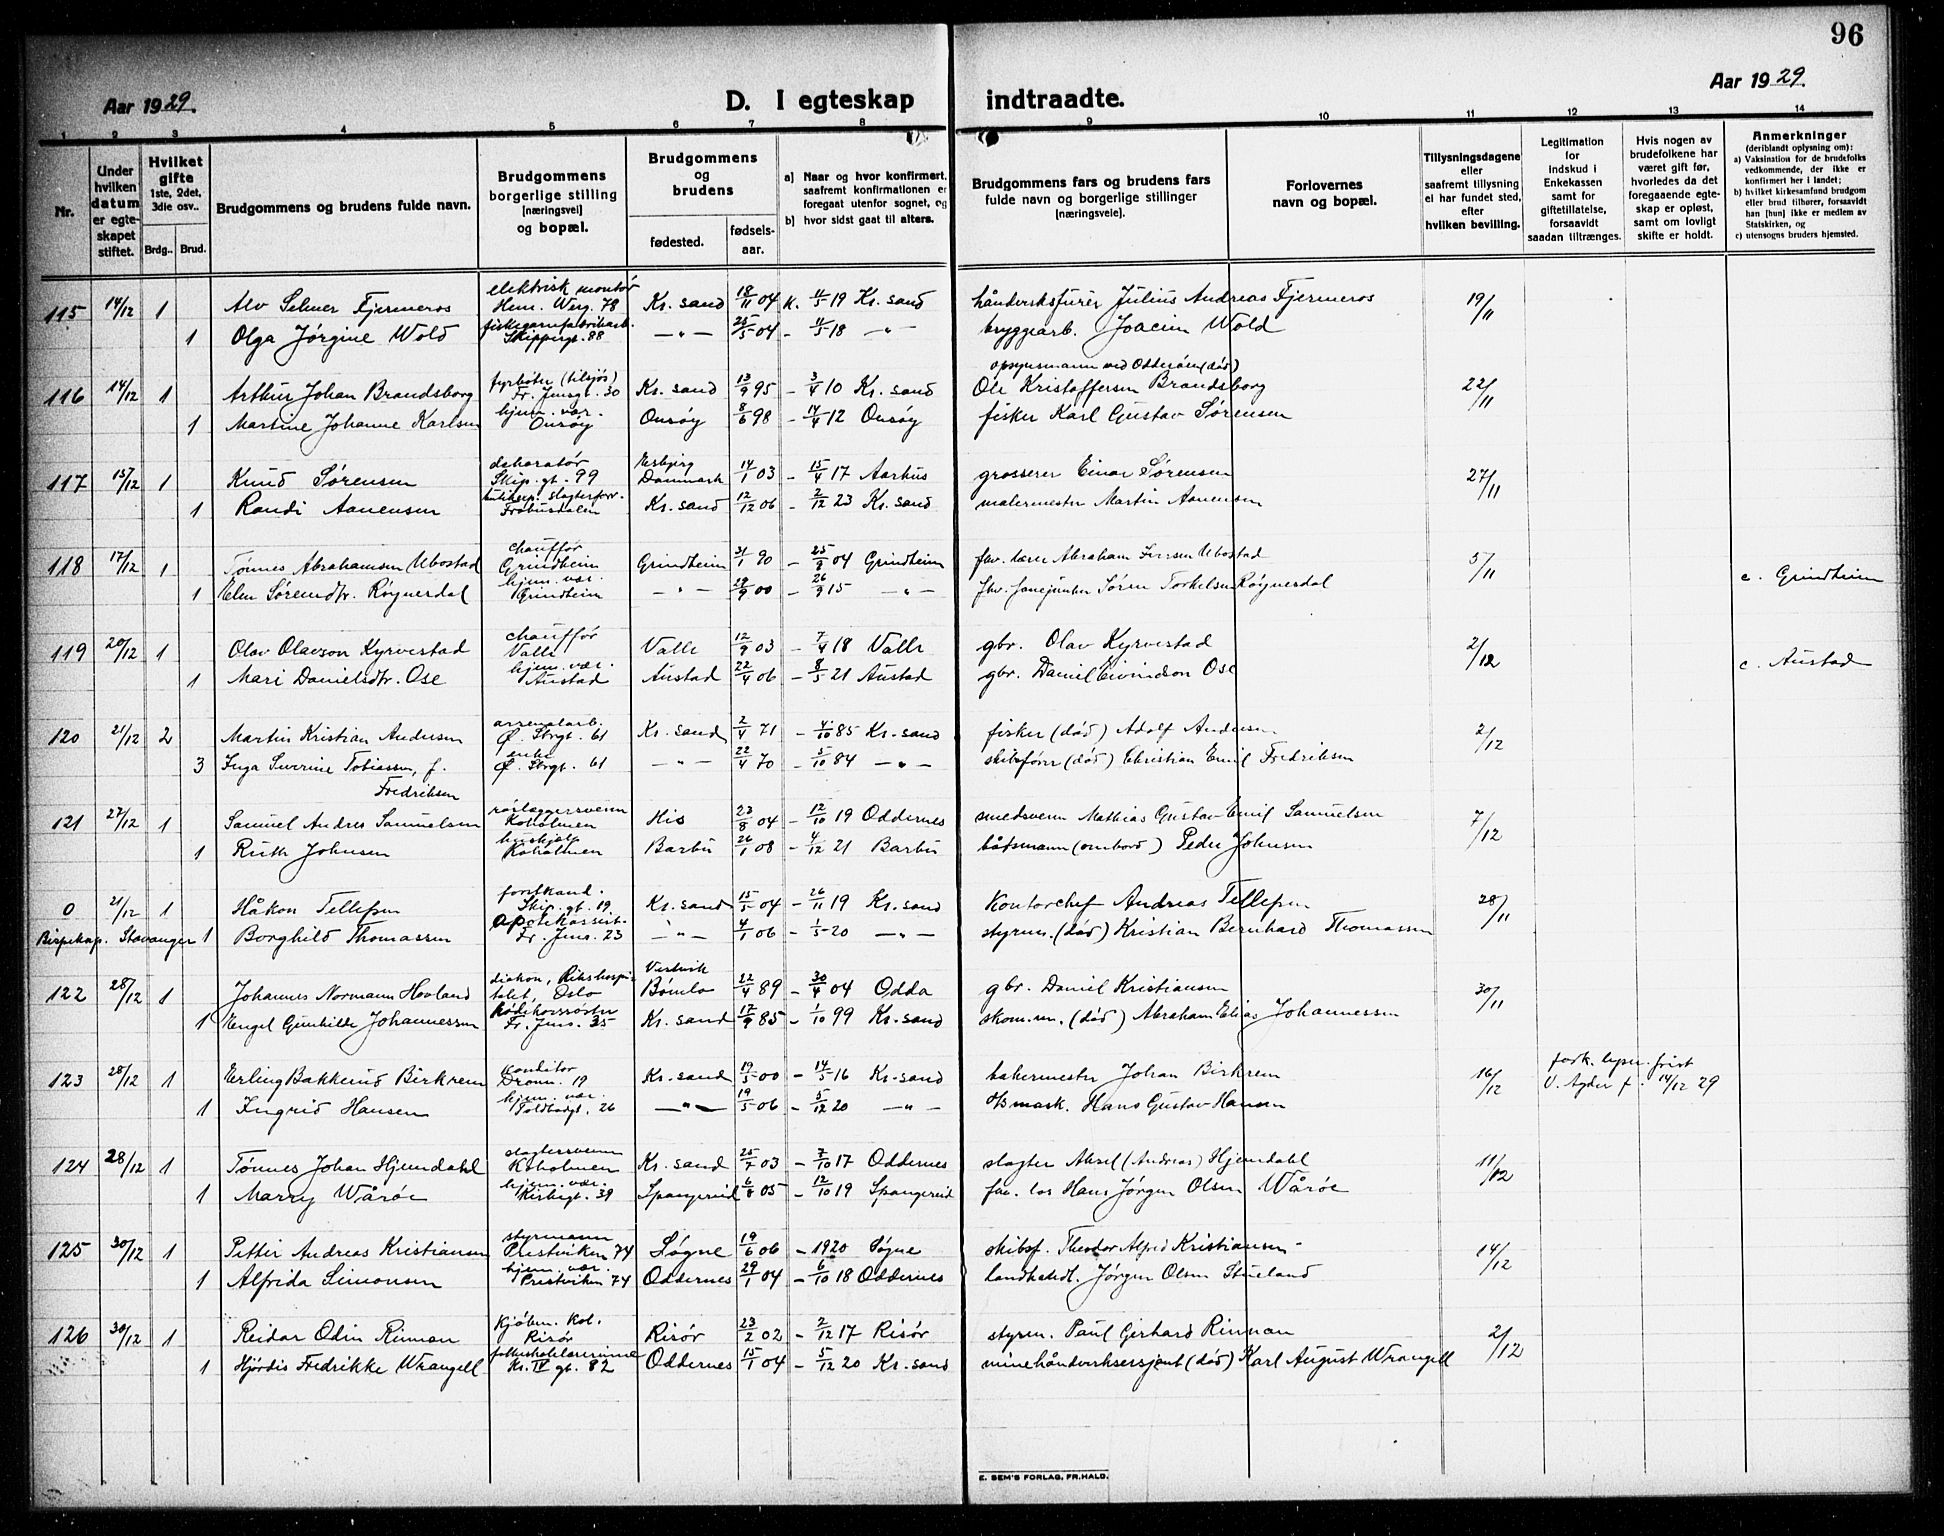 96
Aar 1929.
D. I egteskap indtraadte.
Aar 1929.
1 2 3 4 5 6 7 8 9 10 11 12 13 14
Nr.
Under hvilken datum er egteskapet stiftet.
Hvilket gifte 1ste, 2det, 3die osv..
Brdg.. Brud.
Brudgommens og brudens fulde navn.
Brudgommens borgerlige stilling [næringsvei] og bopæl.
Brudgommens og brudens
fødested. fødselsaar.
a) Naar og hvor konfirmert, saafremt konfirmationen er foregaat utenfor sognet, og
b) hvor sidst gaat til alters.
Brudgommens fars og brudens fars fulde navn og borgerlige stillinger [næringsveie].
Forlovernes navn og bopæl.
Tillysningsdagene eller saafremt tillysning ei har fundet sted, efter hvilken bevilling.
Legitimation for Indskud i Enkekassen samt for giftetillatelse, forsaavidt saadan tiltrænges.
Hvis nogen av brudefolkene har været gift før, hvorledes da det foregaaende egteskap er opløst, samt om lovligt skifte er holdt.
Anmerkninger (deriblandt oplysning om):
a) Vaksination for de brudefolks vedkommende, der ikke er konfirmert her i landet;
b) hvilket kirkesamfund brudgom eller brud tilhører, forsaavidt han [hun] ikke er medlem av Statskirken, og
c) utensogns bruders hjemsted.
115 14/12 1 Alv Selmer Fjermeros elektrisk montør Hen. Werg. 78 Kr. sand 18/11 04 K. 11/5 19 Kr. sand håndverksfurér Julius Andreas Fjermeros 19/11
1 Olga Jørgine Wold fiskegarnfabrikarb. Skippergt. 88 — " — 25/5 04 — 11/5 18 — " — bryggearb. Joacim Wold
116 14/12 1 Arthur Johan Brandsborg fyrbøter (tilsjøs) Fr. Jensgt. 30 Kr. sand 13/9 95 — 3/4 10 Kr. sand opsynsmann ved Odderøen (død) Ole Kristoffersen Brandsborg 22/11
1 Martine Johanne Karlsen hjem. vær. Onsøy Onsøy 8/6 98 — 14/4 12 Onsøy fisker Karl Gustav Sørensen
117 15/12 1 Knud Sørensen dekoratør Skip. gt. 99 Esbjerg Danmark 14/1 03 — 15/4 17 Aarhus grosserer Einar Sørensen 27/11
1 Randi Aanensen Kr. sand 12/12 06 — 2/12 23 Kr. sand malermester Martin Aanensen
118 17/12 1 Tønnes Abrahamsen Ubostad chauffør Grindheim Grindheim 31/1 90 — 25/9 04 Grindheim fhv. lærer Abraham Ubostad 5/11
1 Elen Sørensdtr. Røynerdal hjem. vær. Grindheim — " — 29/9 00 — 26/9 15 — " — fhv. Søren Torkelsen Røynerdal c. Grindheim
119 20/12 1 Olav Olavson Kyrvestad chauffør Valle Valle 12/9 03 — 7/4 18 Valle gbr. Olav Kyrvestad 2/12
1 Mari Danielsdtr. Ose hjem. vær. Austad Austad 22/4 06 — 8/5 21 Austad gbr. Daniel Eivindson Ose c. Austad
120 21/12 2 Martin Kristian Andersen arsenalarb. Ø. Strgt. 61 Kr. sand 2/4 71 — 4/10 85 Kr. sand fisker (død) Adolf Andersen 2/12
3 Inga Severine Tobiassen, f. Fredriksen enke Ø. Strgt. 61 — " — 22/4 70 — 5/10 84 — " — skibsfører (død) Christian Emil Fredriksen
121 27/12 1 Samuel Andres Samuelsen rørlæggersvenn Koholmen His 23/8 04 — 12/10 19 Oddernes smedsvenn Mathias Gustav Emil Samuelsen 7/12
1 Ruth Johnsen hushjelp Koholmen Barbu 26/1 08 — 4/12 21 Barbu båtsmann (ombord) Peder Johnsen
0 21/12 1 Håkon Tellefsen forstkand. Skip. gt. 19 Kr. sand 15/5 04 — 26/11 19 Kr. sand Kontorchef Andreas Tellefsen 28/11
Bispekap. Stavanger 1 Borghild Thomassen apotekassist. Fr. Jens. 23 — " — 4/1 06 — 1/5 20 — " — styrm. (død) Kristian Bernhard Thomassen
122 28/12 1 Johannes Normann Hovland diakon, Rikshospitalet, Oslo Bømlo 22/4 89 — 30/4 04 Odda gbr. Daniel Kristiansen 30/11
1 Engel Gunhilde Johannessen Fr. Jens. 35 Kr. sand 17/9 85 — 1/10 99 Kr. sand skom.m. (død) Abraham Elias Johannessen
123 28/12 1 Erling Bakkerud Birkrem konditor Dronn. 19 Kr. sand 19/5 00 — 14/5 16 Kr. sand bakermester Johan Birkrem 16/12 V. Agder f. 14/12 29
1 Ingrid Hansen hjem. vær. Toldbodgt. 26 — " — 19/5 06 — 5/12 20 — " — o/s mask. Hans Gustav Hansen
124 28/12 1 Tønnes Johan Hjemdahl slagtersvenn Koholmen Kr. sand 25/7 03 — 7/10 17 Oddernes slagter Aksel (Andreas) Hjemdahl 11/12
1 Marry Wårøe hjem. vær. Kirkegt. 39 Spangereid 6/8 05 — 12/10 19 Spangereid fhv. los Hans Jørgen Olsen Wårøe
125 30/12 1 Petter Andreas Kristiansen styrmann Prestviken 74 Søgne 19/6 06 — 1920 Søgne skibsf. Theodor Alfred Kristiansen 14/12
1 Alfrida Simonsen hjem. vær. Prestviken 74 Oddernes 29/1 04 — 6/10 18 Oddernes landhdl. Jørgen Olsen Stueland
126 30/12 1 Reidar Odin Rinnan kjøbm. Kol. Risør Risør 23/2 02 — 2/12 17 Risør styrm. Paul Gerhard Rinnan 2/12
1 Hjørdis Fredrikke Wrangell folkeskolelærerinne Kr. IV gt. 82 Oddernes 15/1 04 — 5/12 20 Kr. sand minehåndverksersjent (død) Karl August Wrangell
E. SEM'S FORLAG, FR.HALD.